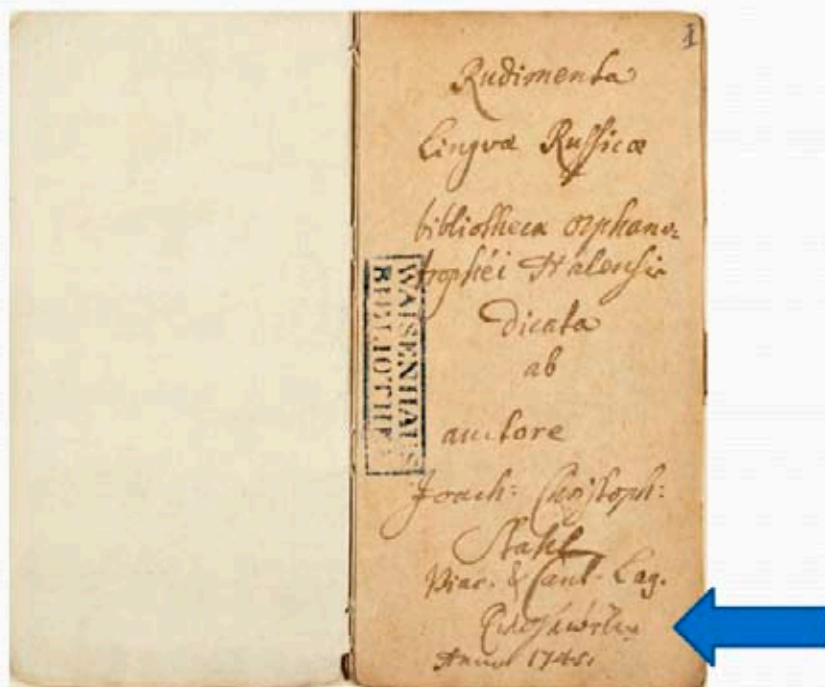 1
Rudimenta
Lingvæ Russicæ
bibliothecæ Orphano=
trophéi Halensis
dicata
ab
auctore
Joach: Christoph:
Stahl
& Cant. Lag.
Anno 1745.
WAISENHAUS
BIBLIOTHE